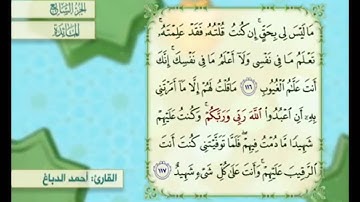 الجزء السابع
المائدة
مَا لَيْسَ لِي بِحَقٍّ إِن كُنتُ قُلْتُهُ فَقَدْ عَلِمْتَهُ
تَعْلَمُ مَا فِي نَفْسِي وَلَا أَعْلَمُ مَا فِي نَفْسِكَ إِنَّكَ
أَنتَ عَلَّامُ الْغُيُوبِ ١١٦ مَا قُلْتُ لَهُمْ إِلَّا مَا أَمَرْتَنِي
بِهِ أَنِ اعْبُدُوا اللَّهَ رَبِّي وَرَبَّكُمْ وَكُنتُ عَلَيْهِمْ
شَهِيدًا مَّا دُمْتُ فِيهِمْ فَلَمَّا تَوَفَّيْتَنِي كُنتَ أَنتَ
الرَّقِيبَ عَلَيْهِمْ وَأَنتَ عَلَىٰ كُلِّ شَيْءٍ شَهِيدٌ ١١٧
القارئ: أحمد الدباغ